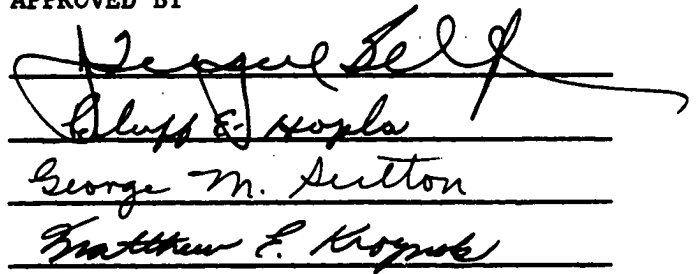 APPROVED BY
Cluff E. Hopla
George M. Sutton
Matthew F.